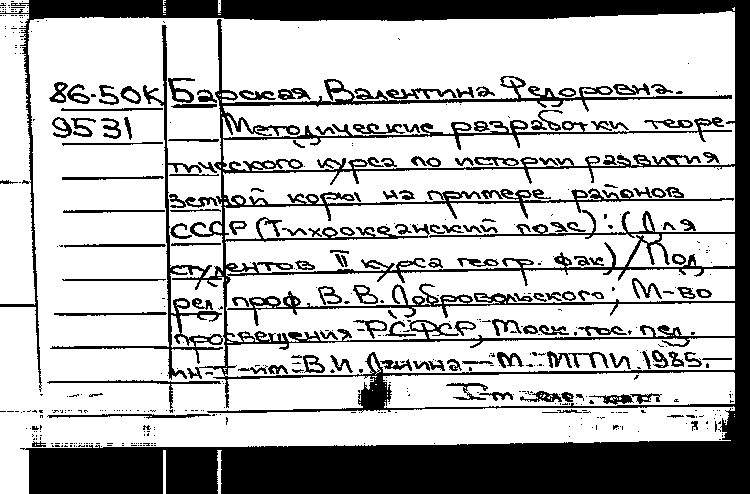 86-50К Барская, Валентина Федоровна.
9531 Методические разработки теоре-
тического курса по истории развития
земной коры на примере районов
СССР (Тихоокеанский пояс): (Для
студентов II курса геогр. фак) / Под
ред. проф. В. В. Добровольского; М-во
просвещения РСФСР, Моск. гос. пед.
ин-т им. В. И. Ленина. — М.: МГПИ, 1985.